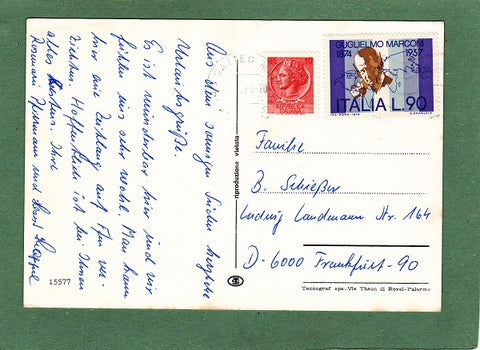 Aus dem sonnigen Süden herzliche
Urlaubsgrüße.
Es ist wunderbar hier und wir
fühlen uns sehr wohl. Man kann
hier mit Zeitung auf Ffm ver-
zichten. Hoffentlich ist bei Ihnen
alles bestens. Ihre
Rosmarie und
15577
riproduzione vietata
GUGLIELMO MARCONI
1874 1937
ITALIA L.90
Familie
B. Schießer
Ludwig Landmann Str. 164
D-6000 Frankfurt-90
Tecnograf spa. Via Thaon di Revel-Palermo